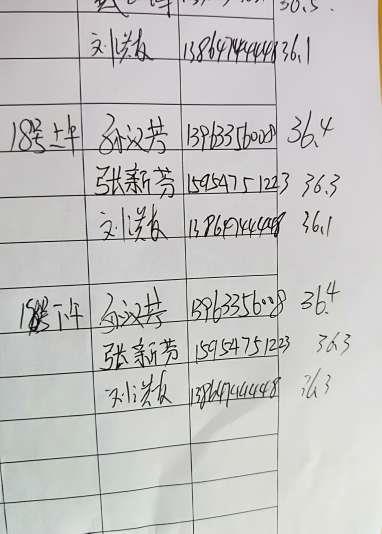 36.5
刘洪友 13864744448 36.1
18号上午 孙汉芳 13963356008 36.4
张新芳 15954751223 36.3
刘洪友 13864744448 36.1
18号下午 孙汉芳 13963356008 36.4
张新芳 15954751223 36.3
刘洪友 13864744448 36.3